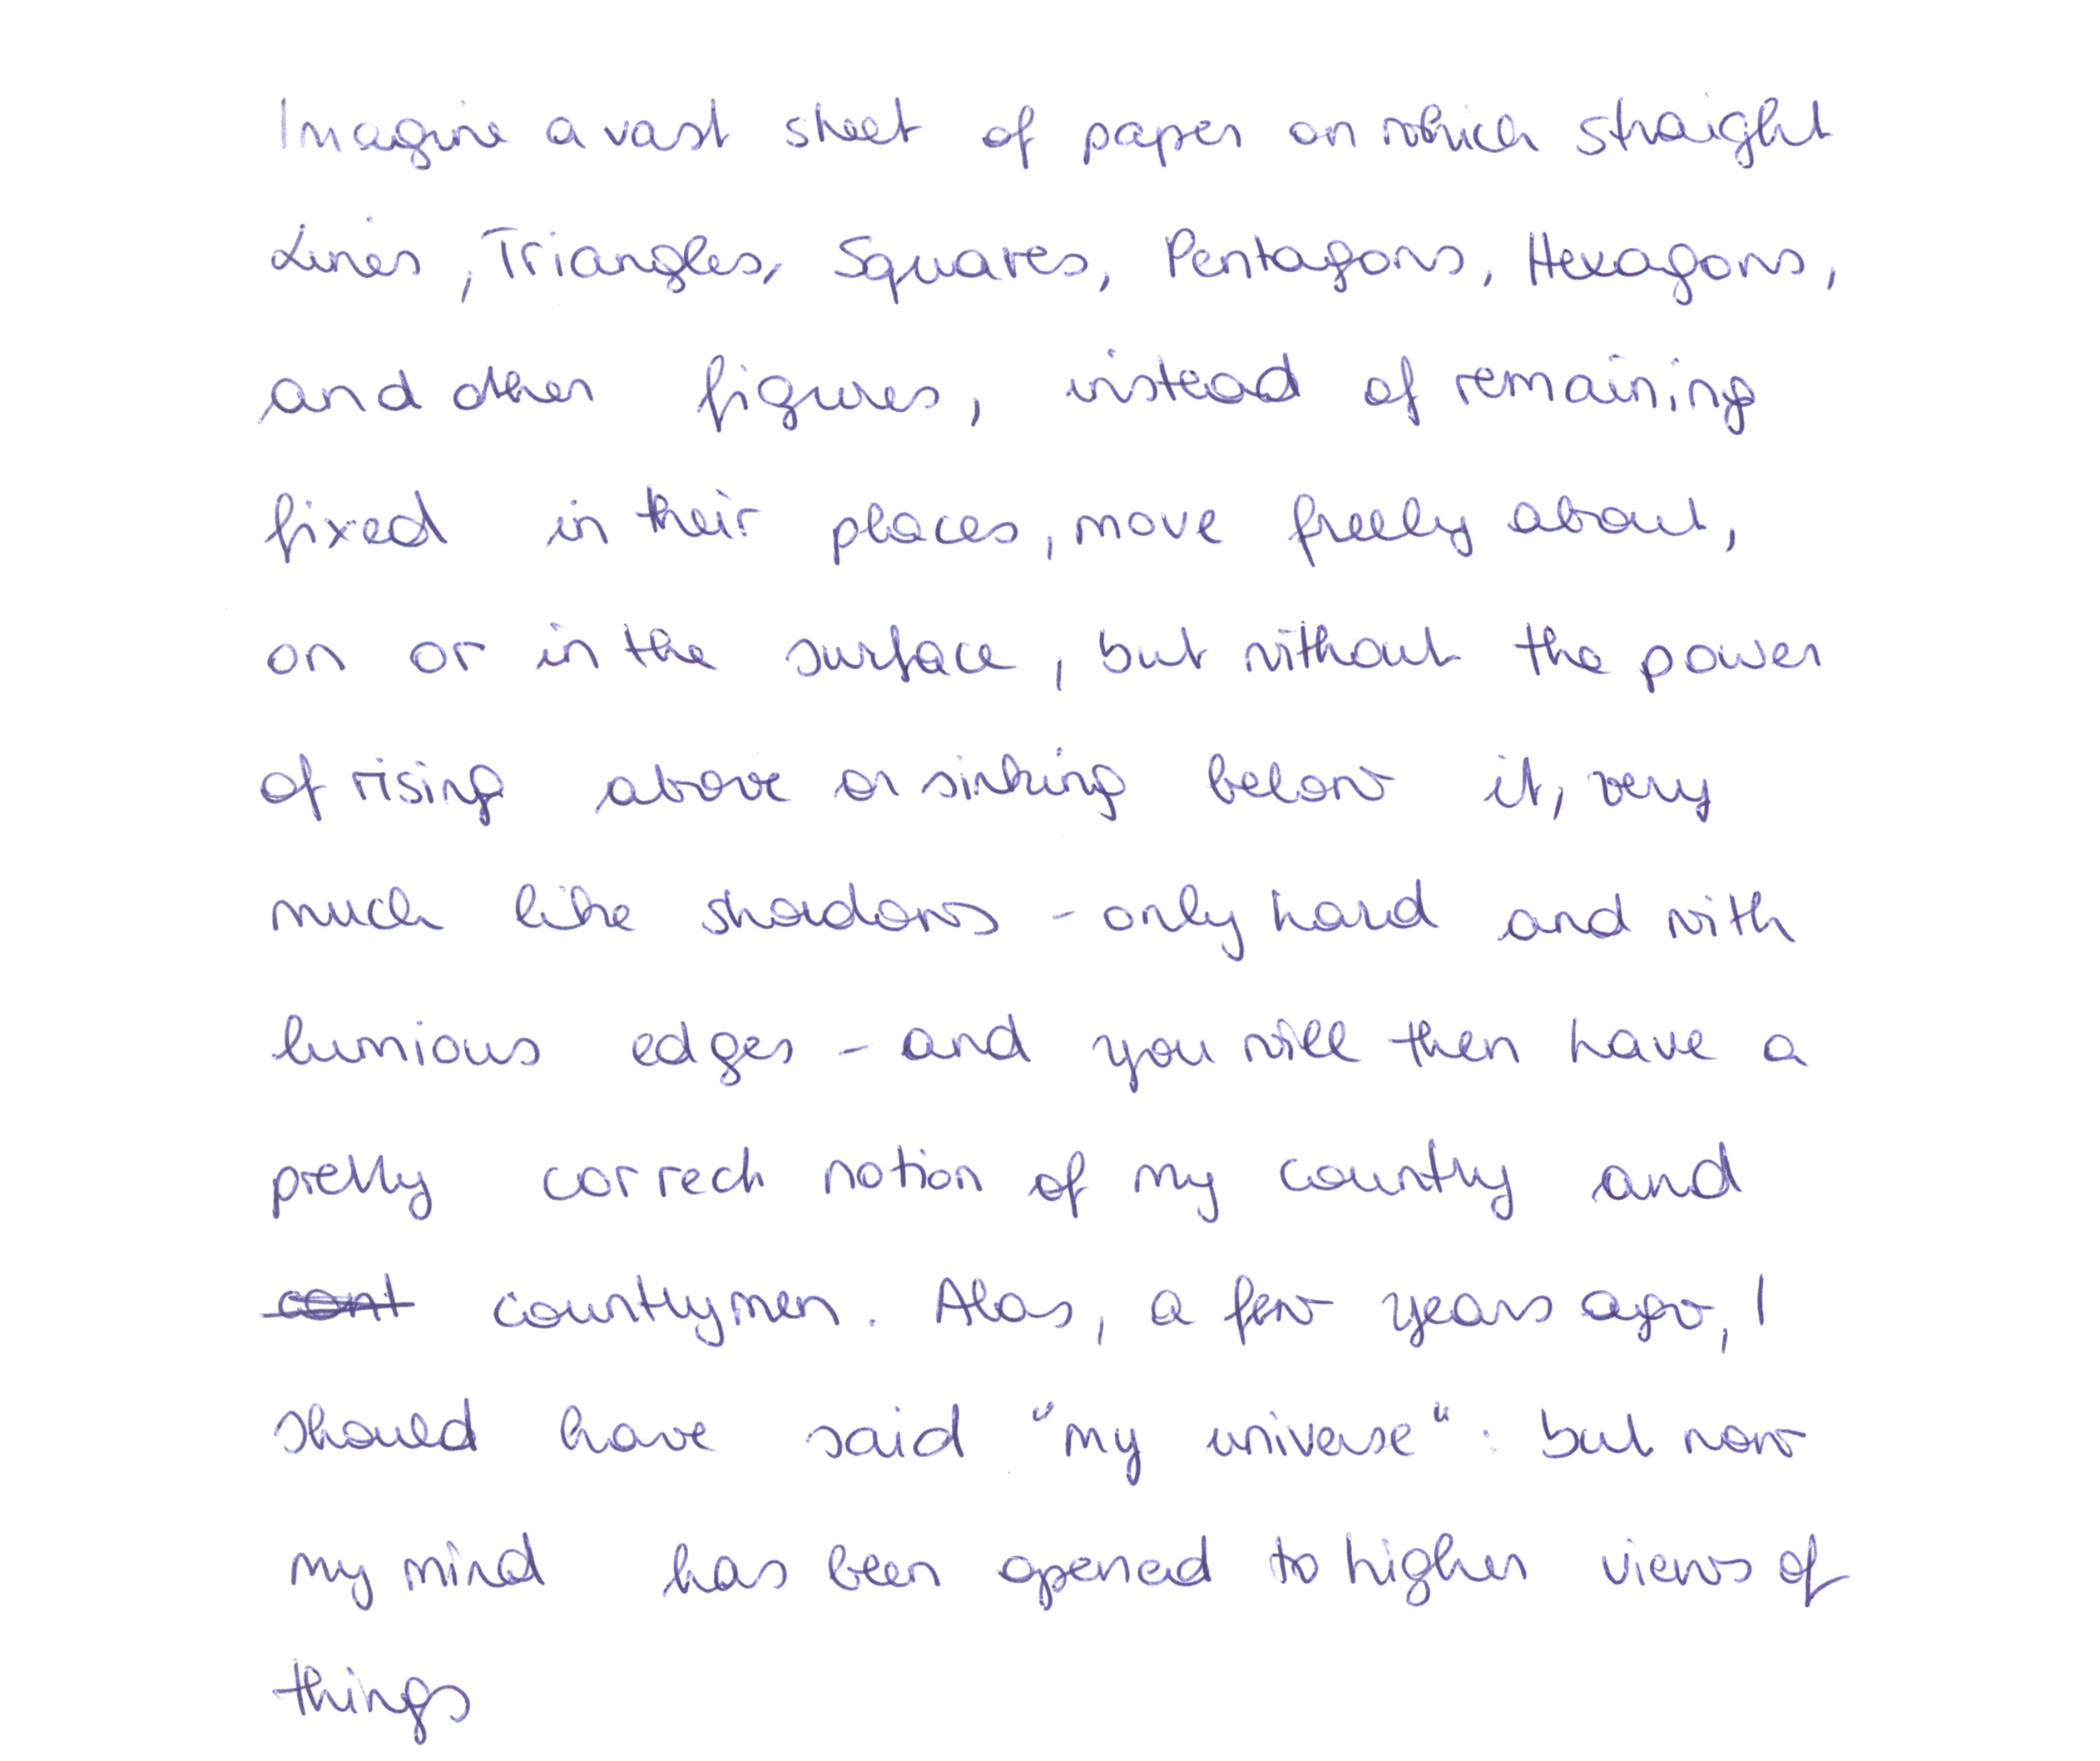 Imagine a vast sheet of paper on which straight
Lines, Triangles, Squares, Pentagons, Hexagons,
and other figures, instead of remaining
fixed in their places, move freely about,
on or in the surface, but without the power
of rising above or sinking below it, very
much like shadows - only hard and with
lumious edges - and you will then have a
pretty correct notion of my country and
cont countrymen. Alas, a few years ago, I
should have said "my universe": but now
my mind has been opened to higher views of
things